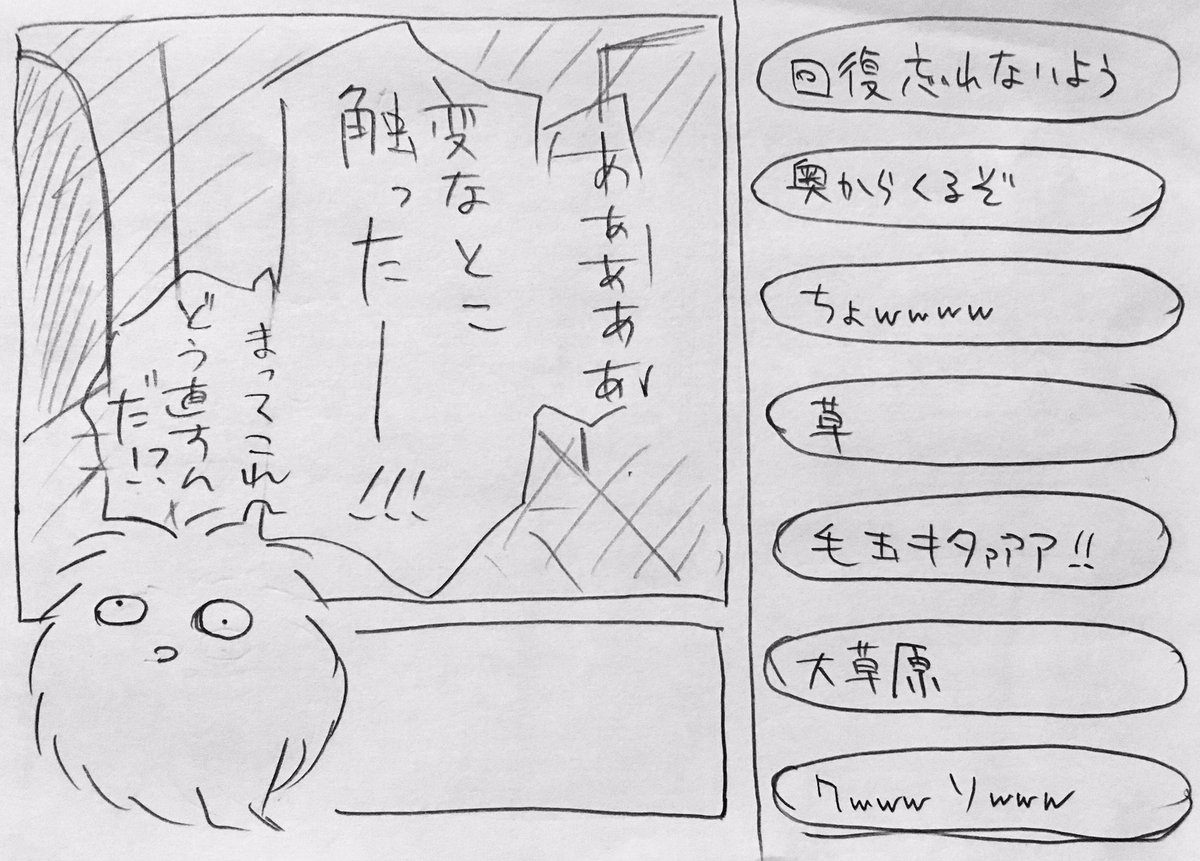 ああああああ
変なとこ
触ったー!!!
まってこれ
どう直すん
だ!?
回復忘れないよう
奥からくるぞ
ちょwwww
草
毛玉キタァァア!!
大草原
クwwwソwww